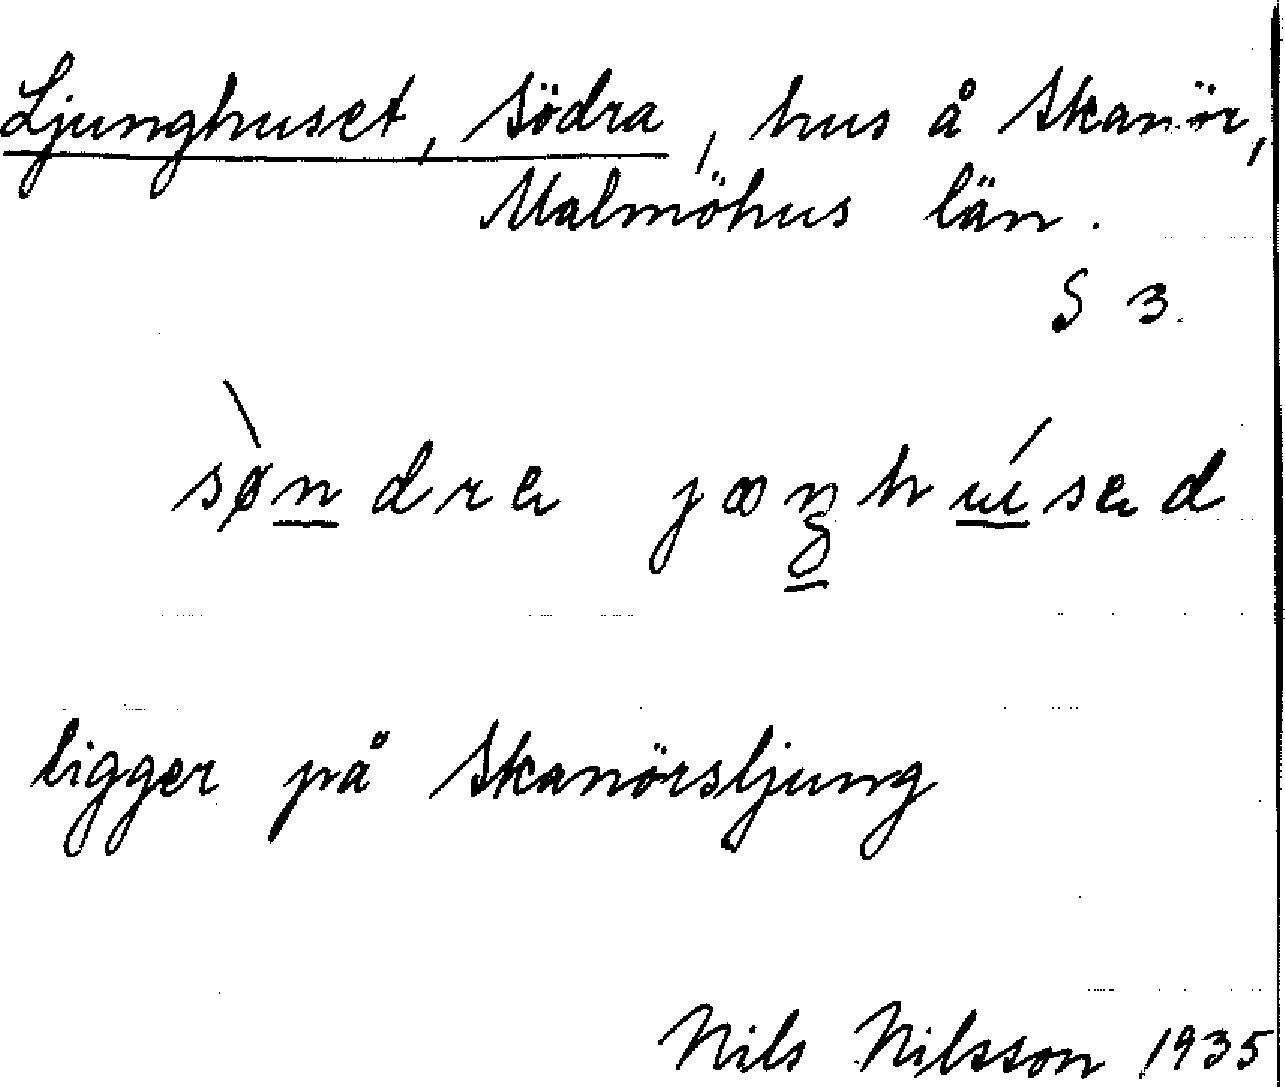 Ljunghuset, Södra, hus å Skanör,
Malmöhus län.
S 3.
sø̀ndra joŋhúsad
ligger på Skanörsljung
Nils Nilsson 1935